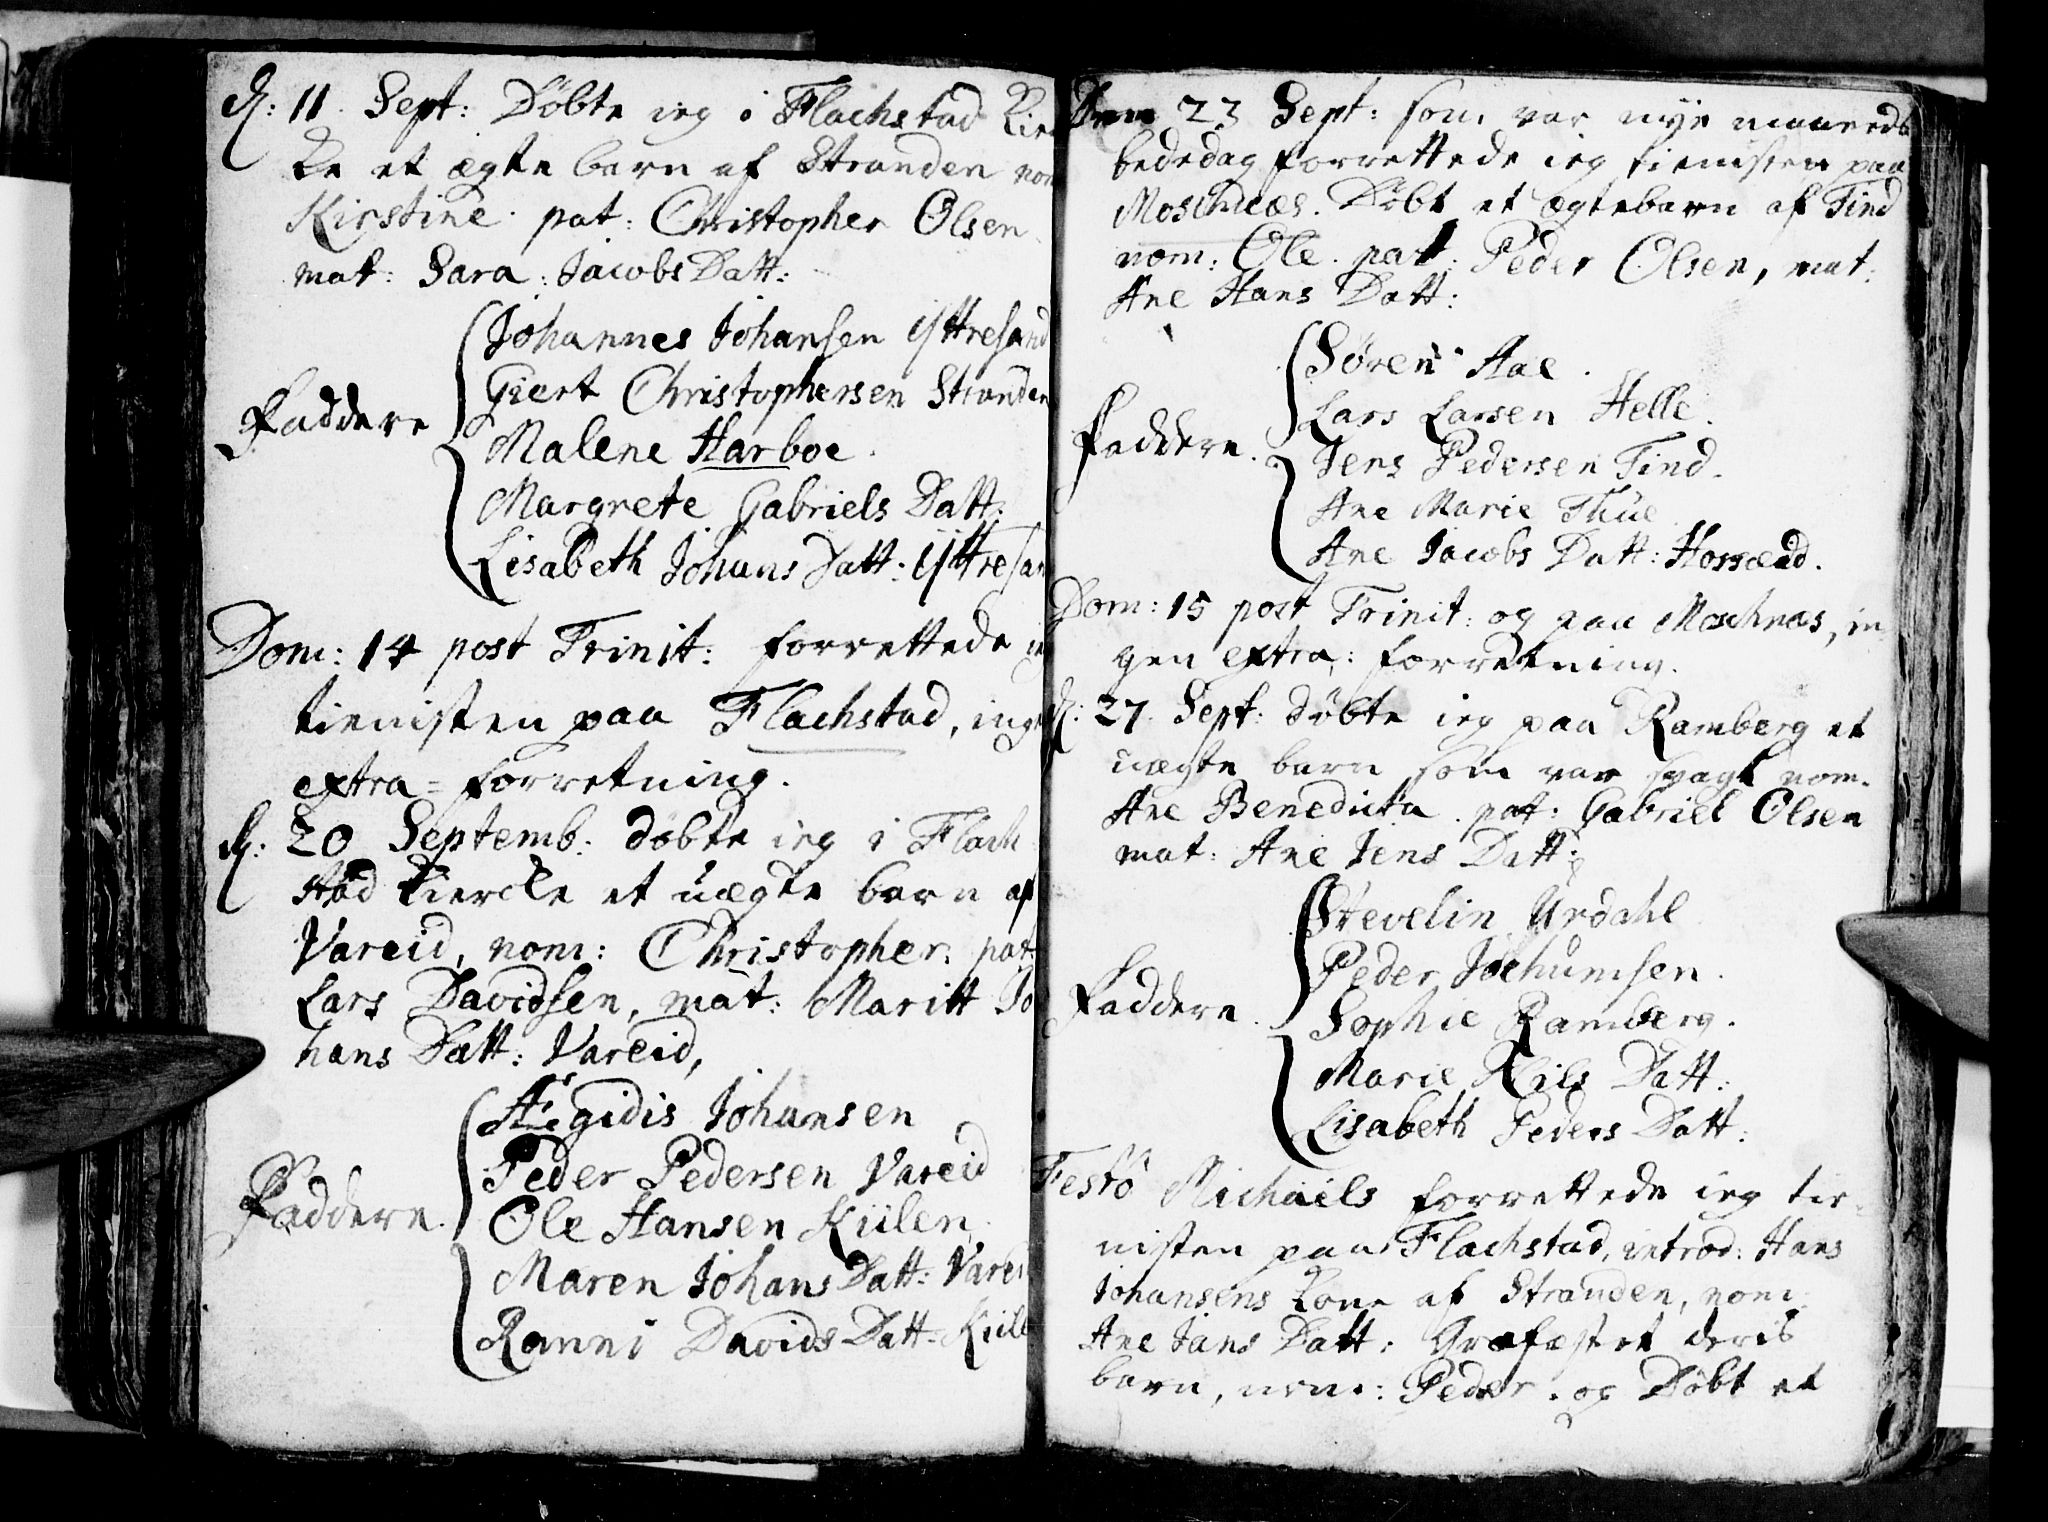 d: 11. Sept: Døbte ieg i Flachstad Kier
ke et ægte barn af Stranden nom
Kirstine. pat: Christopher Olsen
mat: Sara: Jacobs Datt:
Johannes Johansen Yttresand
Giert Christophersen Stranden
Faddere
Malene Harboe.
Margrete Gabriels Datt:
Lisabeth Johans Datt: Yttresan
Dom: 14 post Trinit: forrettede ieg
tienisten paa Flachstad, inge
extra = forretning.
d: 20 Septemb: døbte ieg i Flach
stad Kiercke et uægte barn af
Vareid, nom: Christopher. pat
Lars Davidsen, mat: Maritt Jo
hans Datt: Vareid,
Ægidis Johansen
Peder Pedersen Vareid
Faddere.
Ole Hansen Kiilen
Maren Johans Datt: Varei
Ranni Davids Datt. Kiile
Den 23 Sept: som var nye maaneds
bededag forrettede ieg tienisten paa
Moschnæs. Døbt et ægtebarn af Find
nom: Ole. pat: Peder Olsen, mat:
Ane Hans Datt:
Søren Aae.
Lars Larsen Helle.
Faddere.
Jens Pedersen Find.
Ane Marie Thue
Ane Jacobs Datt: Hossæid.
Dom: 15 post Trinit: og paa Moschnæs, in
gen extra: forretning.
d: 27. Sept: døbte ieg paa Ramberg et
uægte barn som var svagt nom.
Ane Benedicta. pat: Gabriel Olsen
mat: Ane Jens Datt:
Stevelin Urdahl
Peder Jochumsen.
Faddere.
Sophie Ramberg.
Marie Nils Datt:
Lisabeth Peders Datt:
Festo Michaëls forrettede ieg tie-
nisten paa Flachstad, introd: Hans
Johansens Kone af Stranden, nom:
Ane Jans Datt: Græfæstet deris
barn, nom: Peder. og Døbt et